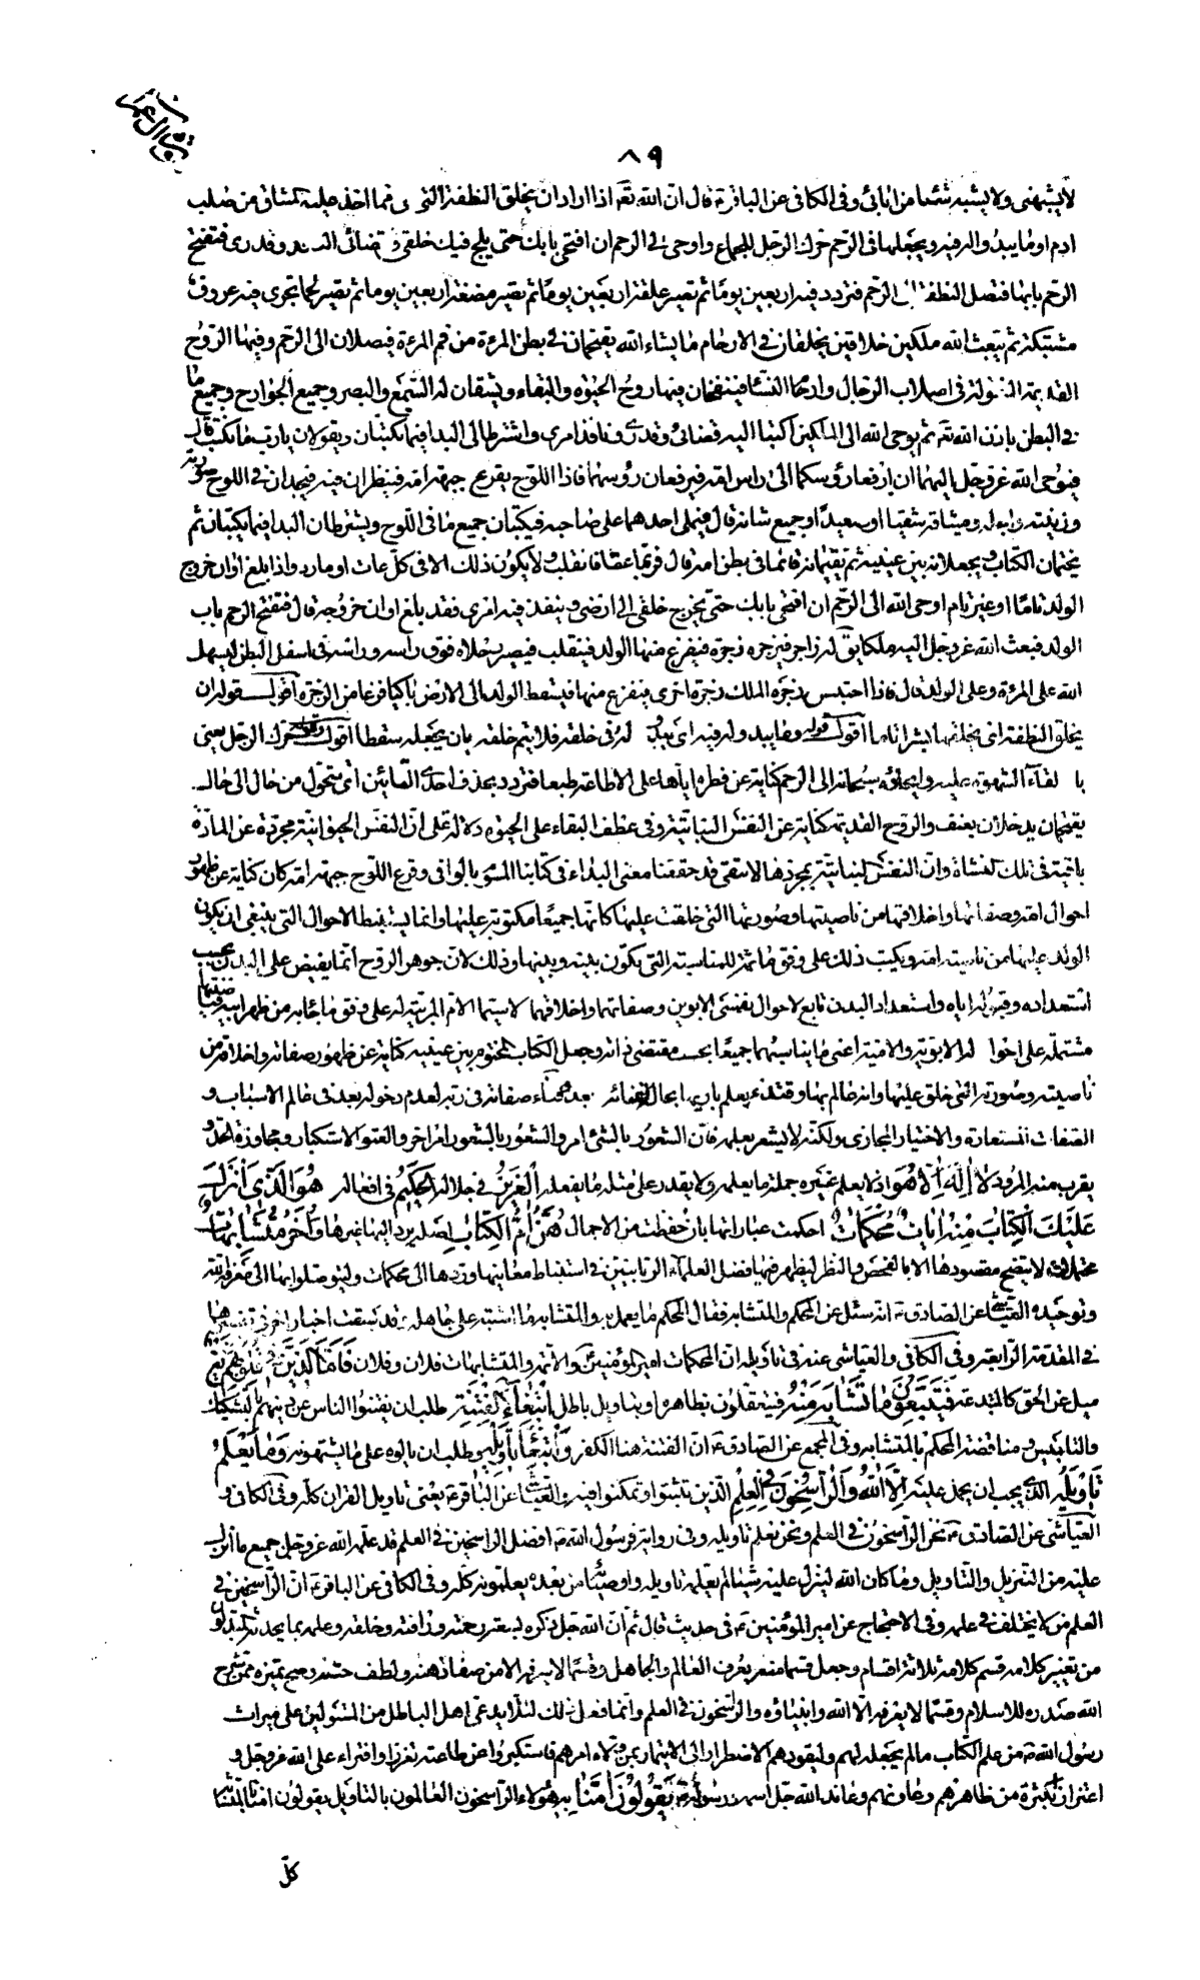 سورة آل عمران
٨٩
لا يشبهنى ولا يشبه شيئا من ابائى وفى الكافى عن الباقر ع قال ان الله تع اذا اراد ان يخلق النطفة التى فما اخذ عليه الميثاق من صلب
ادم او ما يبدو له فيه ويجعلها فى الرحم حرك الرجل للجماع واوحى الى الرحم ان افتحى بابك حتى يلج فيك خلقى وقضائى النافذ وقدرى فتفتح
الرحم بابها فتصل النطفة الى الرحم فتردد فيه اربعين يومًا ثم تصير علقة اربعين يومًا ثم تصير مضغة اربعين يوما ثم تصير لحما تجرى فيه عروق
مشتبكة ثم يبعث الله ملكين خلاقين يخلقان فى الارحام ما يشاء الله يقتحمان فى بطن المرءة من فم المرءة فيصلان الى الرحم وفيها الروح
القديمة المنقولة فى اصلاب الرجال وارحام النساء فينفخان فيها روح الحيٰوة والبقاء ويشقان له السمع والبصر وجميع الجوارح وجميع ما
فى البطن باذن الله تع ثم يوحى الله الى الملكين اكتبا اليه قضائى وقدرى ونافذ امرى واشترطا لى البدا فيما تكتبان ويقولان يا رب ما نكتب قال
فيوحى الله عز وجل اليهما ان ارفعا رؤسكما الى راس امه فيرفعان رؤسهما فاذا اللوح يقرع جبهة امه فينظران فيه فيجدان فى اللوح صورته
وزينته واجله وميثاقه شقيا او سعيدًا وجميع شانه قال فيملى احدهما على صاحبه فيكتبان جميع ما فى اللوح ويشترطان البدا فيما يكتبان ثم
يختمان الكتاب ويجعلانه بين عينيه ثم يقيمانه قائما فى بطن امه قال فربما عتا فانقلب ولا يكون ذلك الا فى كل عات او مارد واذا بلغ اوان خروج
الولد تامًا او غير تام اوحى الله الى الرحم ان افتحى بابك حتى يخرج خلقى الى ارضى وينفذ فيه امرى فقد بلغ اوان خروجه قال فتفتح الرحم باب
الولد فيبعث الله عز وجل اليه ملكا يق له زاجر فيزجره زجرة فيفزع منها الولد فينقلب فيصير رجلاه فوق راسه وراسه فى اسفل البطن ليسهل
الله على المرءة وعلى الولد قال فاذا احتبس زجره الملك زجرة اخرى فيفزع منها فيسقط الولد الى الارض باكيا فزعا من الزجرة اقول قوله ان
يخلق النطفة اى يخلقها بشرا تاما اقول قوله وما يبدو له فيه اى يبدو له فى خلقه فلا يتم خلقه بان يجعله سقطا اقول قوله حرك الرجل يعنى
بالقاء الشهوة عليه وايحاؤه سبحانه الى الرحم كناية عن فطره اياها على الاطاعة طبعا فتردد بحذف احدى التائين اى تتحول من حال الى حال
يقتحمان يدخلان بعنف والروح القديمة كناية عن النفس النباتية وفى عطف البقاء على الحيٰوة دلالة على ان النفس الحيوانية مجردة عن المادة
باقية فى تلك النشاة وان النفس النباتية بمجردها لا تبقى قد حققنا معنى البداء فى كتابنا المسمى بالوافى وقرع اللوح جبهة امه كان كناية عن ظهور
احوال امه وصفاتها واخلاقها من ناصيتها وصورتها التى خلقت عليها كانها جميعًا مكتوبة عليها وانما يستنبط الاحوال التى ينبغى ان يكون
الولد عليها من ناصية امه ويكتب ذلك على وفق ما ثم للمناسبة التى يكون بينه وبينها وذلك لان جوهر الروح انما يفيض على البدن بحسب
استعداده وقبوله اياه واستعداد البدن تابع لاحوال نفسى الابوين وصفاتهما واخلاقهما لا سيما الام المربية له على وفق ما جاء به من ظهر ابيه فهى
مشتملة على احوال له الابوية والامية اعنى ما يناسبهما جميعًا بحسب مقتضى ذاته وجعل الكتاب المختوم بين عينيه كناية عن ظهور صفاته واخلاقه من
ناصيته وصورته التى خلق عليها وانه عالم بها وقتئذ بعلم باريها بها لفنائه بعد وفناء صفاته فى ربه لعدم دخوله بعد فى عالم الاسباب و
الصفات المستعارة والاختيار المجازى ولكنه لا يشعر بعلمه فان الشعور بالشئ امر والشعور بالشعور امر اخر والعتو الاستكبار ومجاوزة الحد و
يقرب منه المرود لا اِلٰهَ اِلّا هُوَ اذ لا يعلم غيره جملة ما يعلمه ولا يقدر على مثل ما يفعله الْعَزيزُ فى جلاله الْحَكيمُ فى افعاله هُوَ الَّذى اَنْزَلَ
عَلَيْكَ الْكِتابَ مِنْهُ اٰياتٌ مُحْكَماتٌ احكمت عباراتها بان حفظت من الاجمال هُنَّ اُمُّ الْكِتابِ اصله يرد اليها غيرها وَاُخَرُ مُتَشابِهاتٌ
محتملات لا يتضح مقصودها الا بالفحص والنظر ليظهر فيها فضل العلماء الربانيين فى استنباط معانيها وردها الى المحكمات وليتوصلوا بها الى معرفة الله
وتوحيده العياشى عن الصادق ع انه سئل عن المحكم والمتشابه فقال المحكم ما يعمل به والمتشابه ما اشتبه على جاهله وقد سبقت اخبار اخر فى تفسيرهما
فى المقدمة الرابعة وفى الكافى والعياشى عنه فى تاويله ان المحكمات امير المؤمنين والائمة والمتشابهات فلان وفلان فَاَمَّا الَّذينَ فى قُلُوبِهِمْ زَيْغٌ
ميل عن الحق كالمبتدعة فَيَتَّبِعُونَ ما تَشابَهَ مِنْهُ فيتعلقون بظاهره او بتاويل باطل ابْتِغاءَ الْفِتْنَةِ طلب ان يفتنوا الناس عن دينهم بالتشكيك
والتلبيس ومناقضة المحكم بالمتشابه وفى المجمع عن الصادق ع ان الفتنة هنا الكفر وَابْتِغاءَ تَأْويلِهِ وطلب ان ياولوه على ما يشتهونه وَما يَعْلَمُ
تَأْويلَهُ الذى يجب ان يحمل عليه اِلَّا اللهُ وَالرّاسِخُونَ فِى الْعِلْمِ الذين تثبتوا وتمكنوا فيه والعياشى عن الباقر ع يعنى تاويل القران كله وفى الكافى و
العياشى عن الصادق ع نحن الراسخون فى العلم ونحن نعلم تاويله وفى رواية فرسول الله ص افضل الراسخين فى العلم قد علمه الله عز وجل جميع ما انزل
عليه من التنزيل والتاويل وما كان الله لينزل عليه شيئا لم يعلمه تاويله واوصيائه من بعده يعلمونه كله وفى الكافى عن الباقر ع ان الراسخين فى
العلم من لا يختلف فى علمه وفى الاحتجاج عن امير المؤمنين ع فى حديث قال ثم ان الله جل ذكره لسعة رحمته ورافته بخلقه وعلمه بما يحدثه المبدلون
من تغيير كلامه قسم كلامه ثلاثة اقسام وجعل قسما منه يعرف العالم والجاهل وقسما لا يعرفه الا من صفا ذهنه ولطف حسه وصح تميزه ممن شرح
الله صدره للاسلام وقسمًا لا يعرفه الا الله وانبياؤه والراسخون فى العلم وانما فعل ذلك لئلا يدعى اهل الباطل من المستولين على ميراث
رسول الله ص من علم الكتاب ما لم يجعله لهم وليقودهم الاضطرار الى الايتمار بمن ولاه امرهم فاستكبروا عن طاعته تعززا وافتراء على الله عز وجل و
اغترارا بكثرة من ظاهرهم وعاونهم وعاند الله جل اسمه ورسوله ص يَقُولُونَ اٰمَنّا بِهِ هؤلاء الراسخون العالمون بالتاويل يقولون امنا بالمتشابه
كل